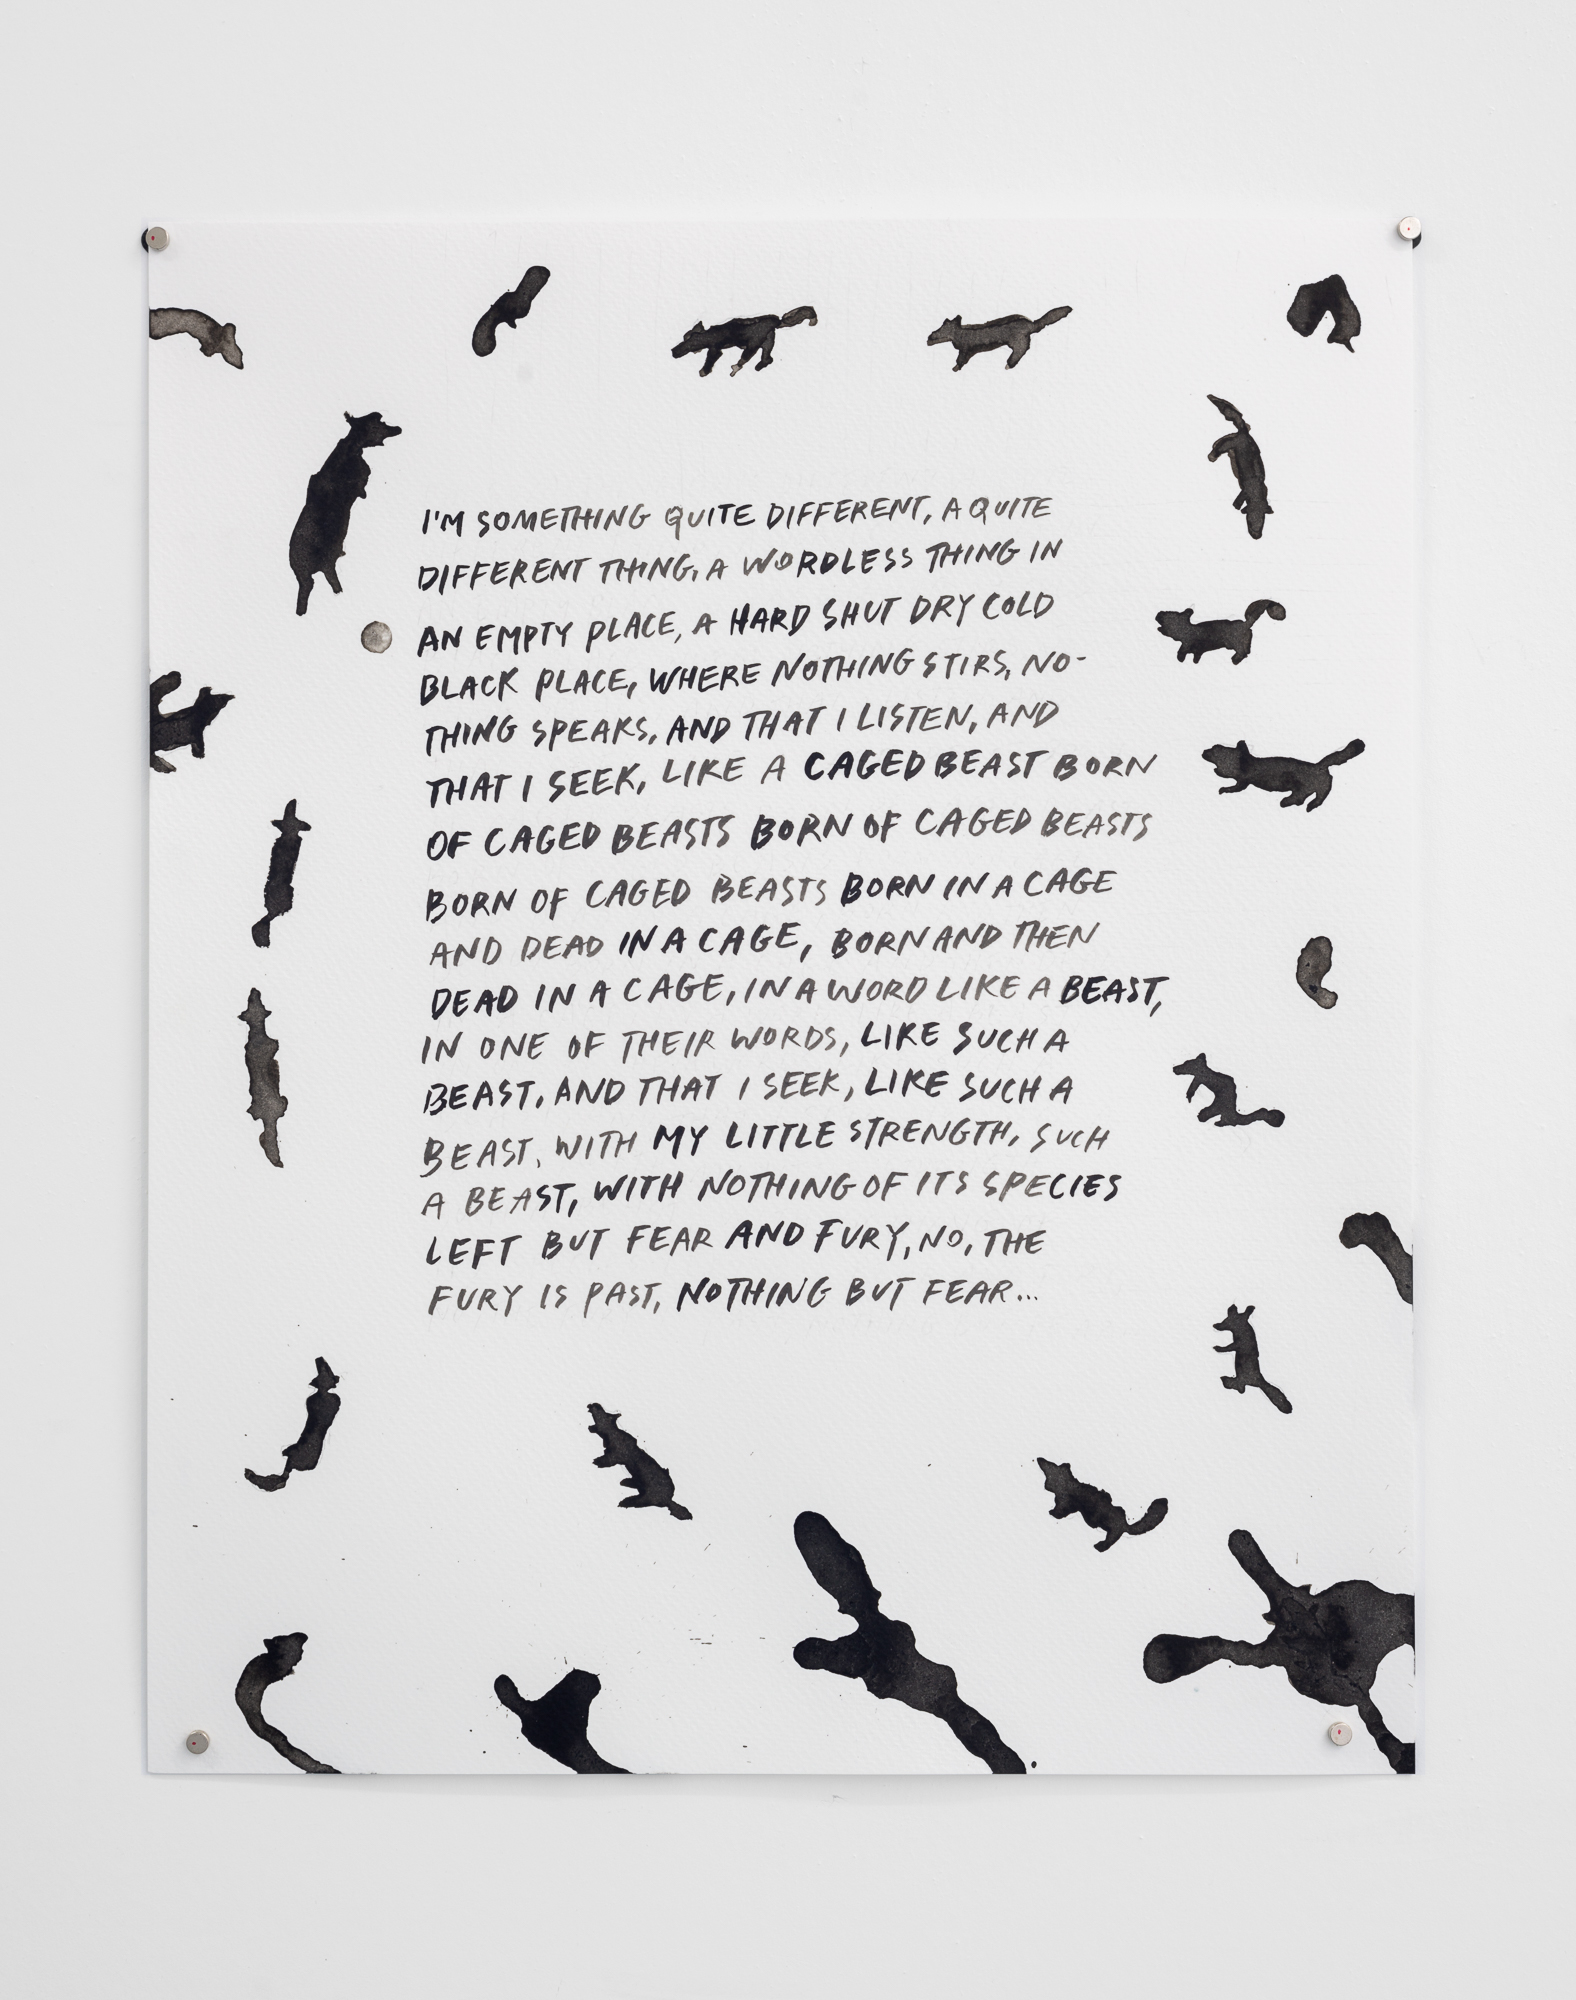 I'M SOMETHING QUITE DIFFERENT, A QUITE
DIFFERENT THING, A WORDLESS THING IN
AN EMPTY PLACE, A HARD SHUT DRY COLD
BLACK PLACE, WHERE NOTHING STIRS, NO-
THING SPEAKS, AND THAT I LISTEN, AND
THAT I SEEK, LIKE A CAGED BEAST BORN
OF CAGED BEASTS BORN OF CAGED BEASTS
BORN OF CAGED BEASTS BORN IN A CAGE
AND DEAD IN A CAGE, BORN AND THEN
DEAD IN A CAGE, IN A WORD LIKE A BEAST,
IN ONE OF THEIR WORDS, LIKE SUCH A
BEAST, AND THAT I SEEK, LIKE SUCH A
BEAST, WITH MY LITTLE STRENGTH, SUCH
A BEAST, WITH NOTHING OF ITS SPECIES
LEFT BUT FEAR AND FURY, NO, THE
FURY IS PAST, NOTHING BUT FEAR...